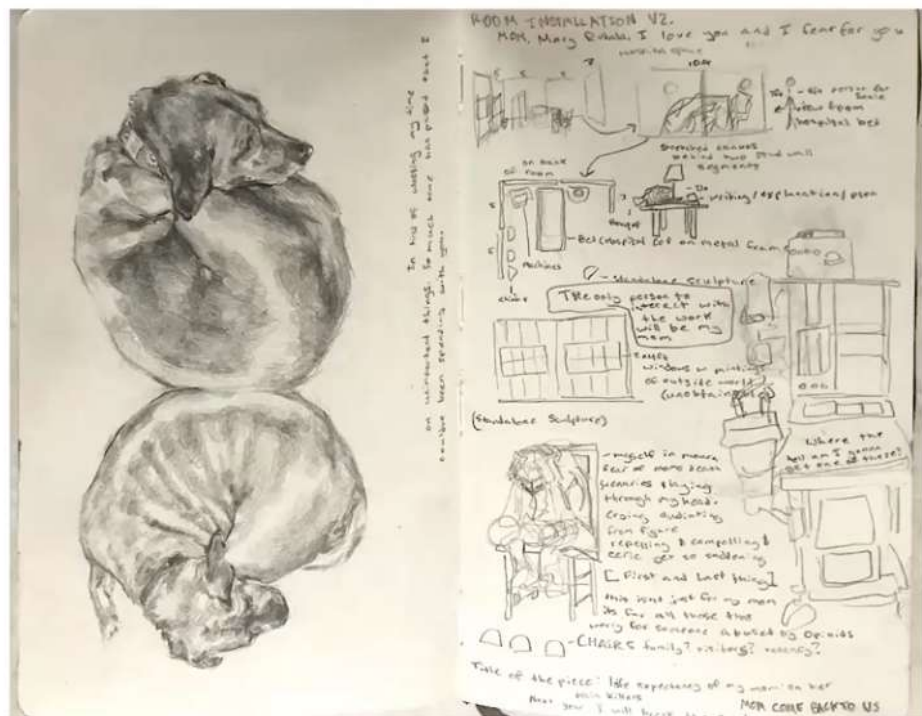 In lieu of wasting my time
on unimportant things. So much time has passed that I
could've been spending with you.
ROOM INSTALLATION V2.
MOM, Mary I love you and I fear for you
hospital space
view from
hospital bed
stretched canvas
behind two stud wall
segments
on back
of room
writing/explanation/poem
Bed (hospital bed on metal frame
machines
chairs
standalone sculpture
The only person to
interact with
the work
will be my
mom
windows w paintings
of outside world
(unobtainable)
(standalone sculpture)
Where the
hell am I gonna
get one of these?
- myself in
fear of moms death
scenarios playing
through my head.
crying
from figure
repelling & compelling &
eerie yet so saddening
[First and last thing]
this isnt just for my mom
its for all those that
worry for someone abused by opioids
- CHAIRS family? visitors? vacancy?
Title of the piece: life expectancy of my mom on her
pain killers
Next year I will
MOM COME BACK TO US